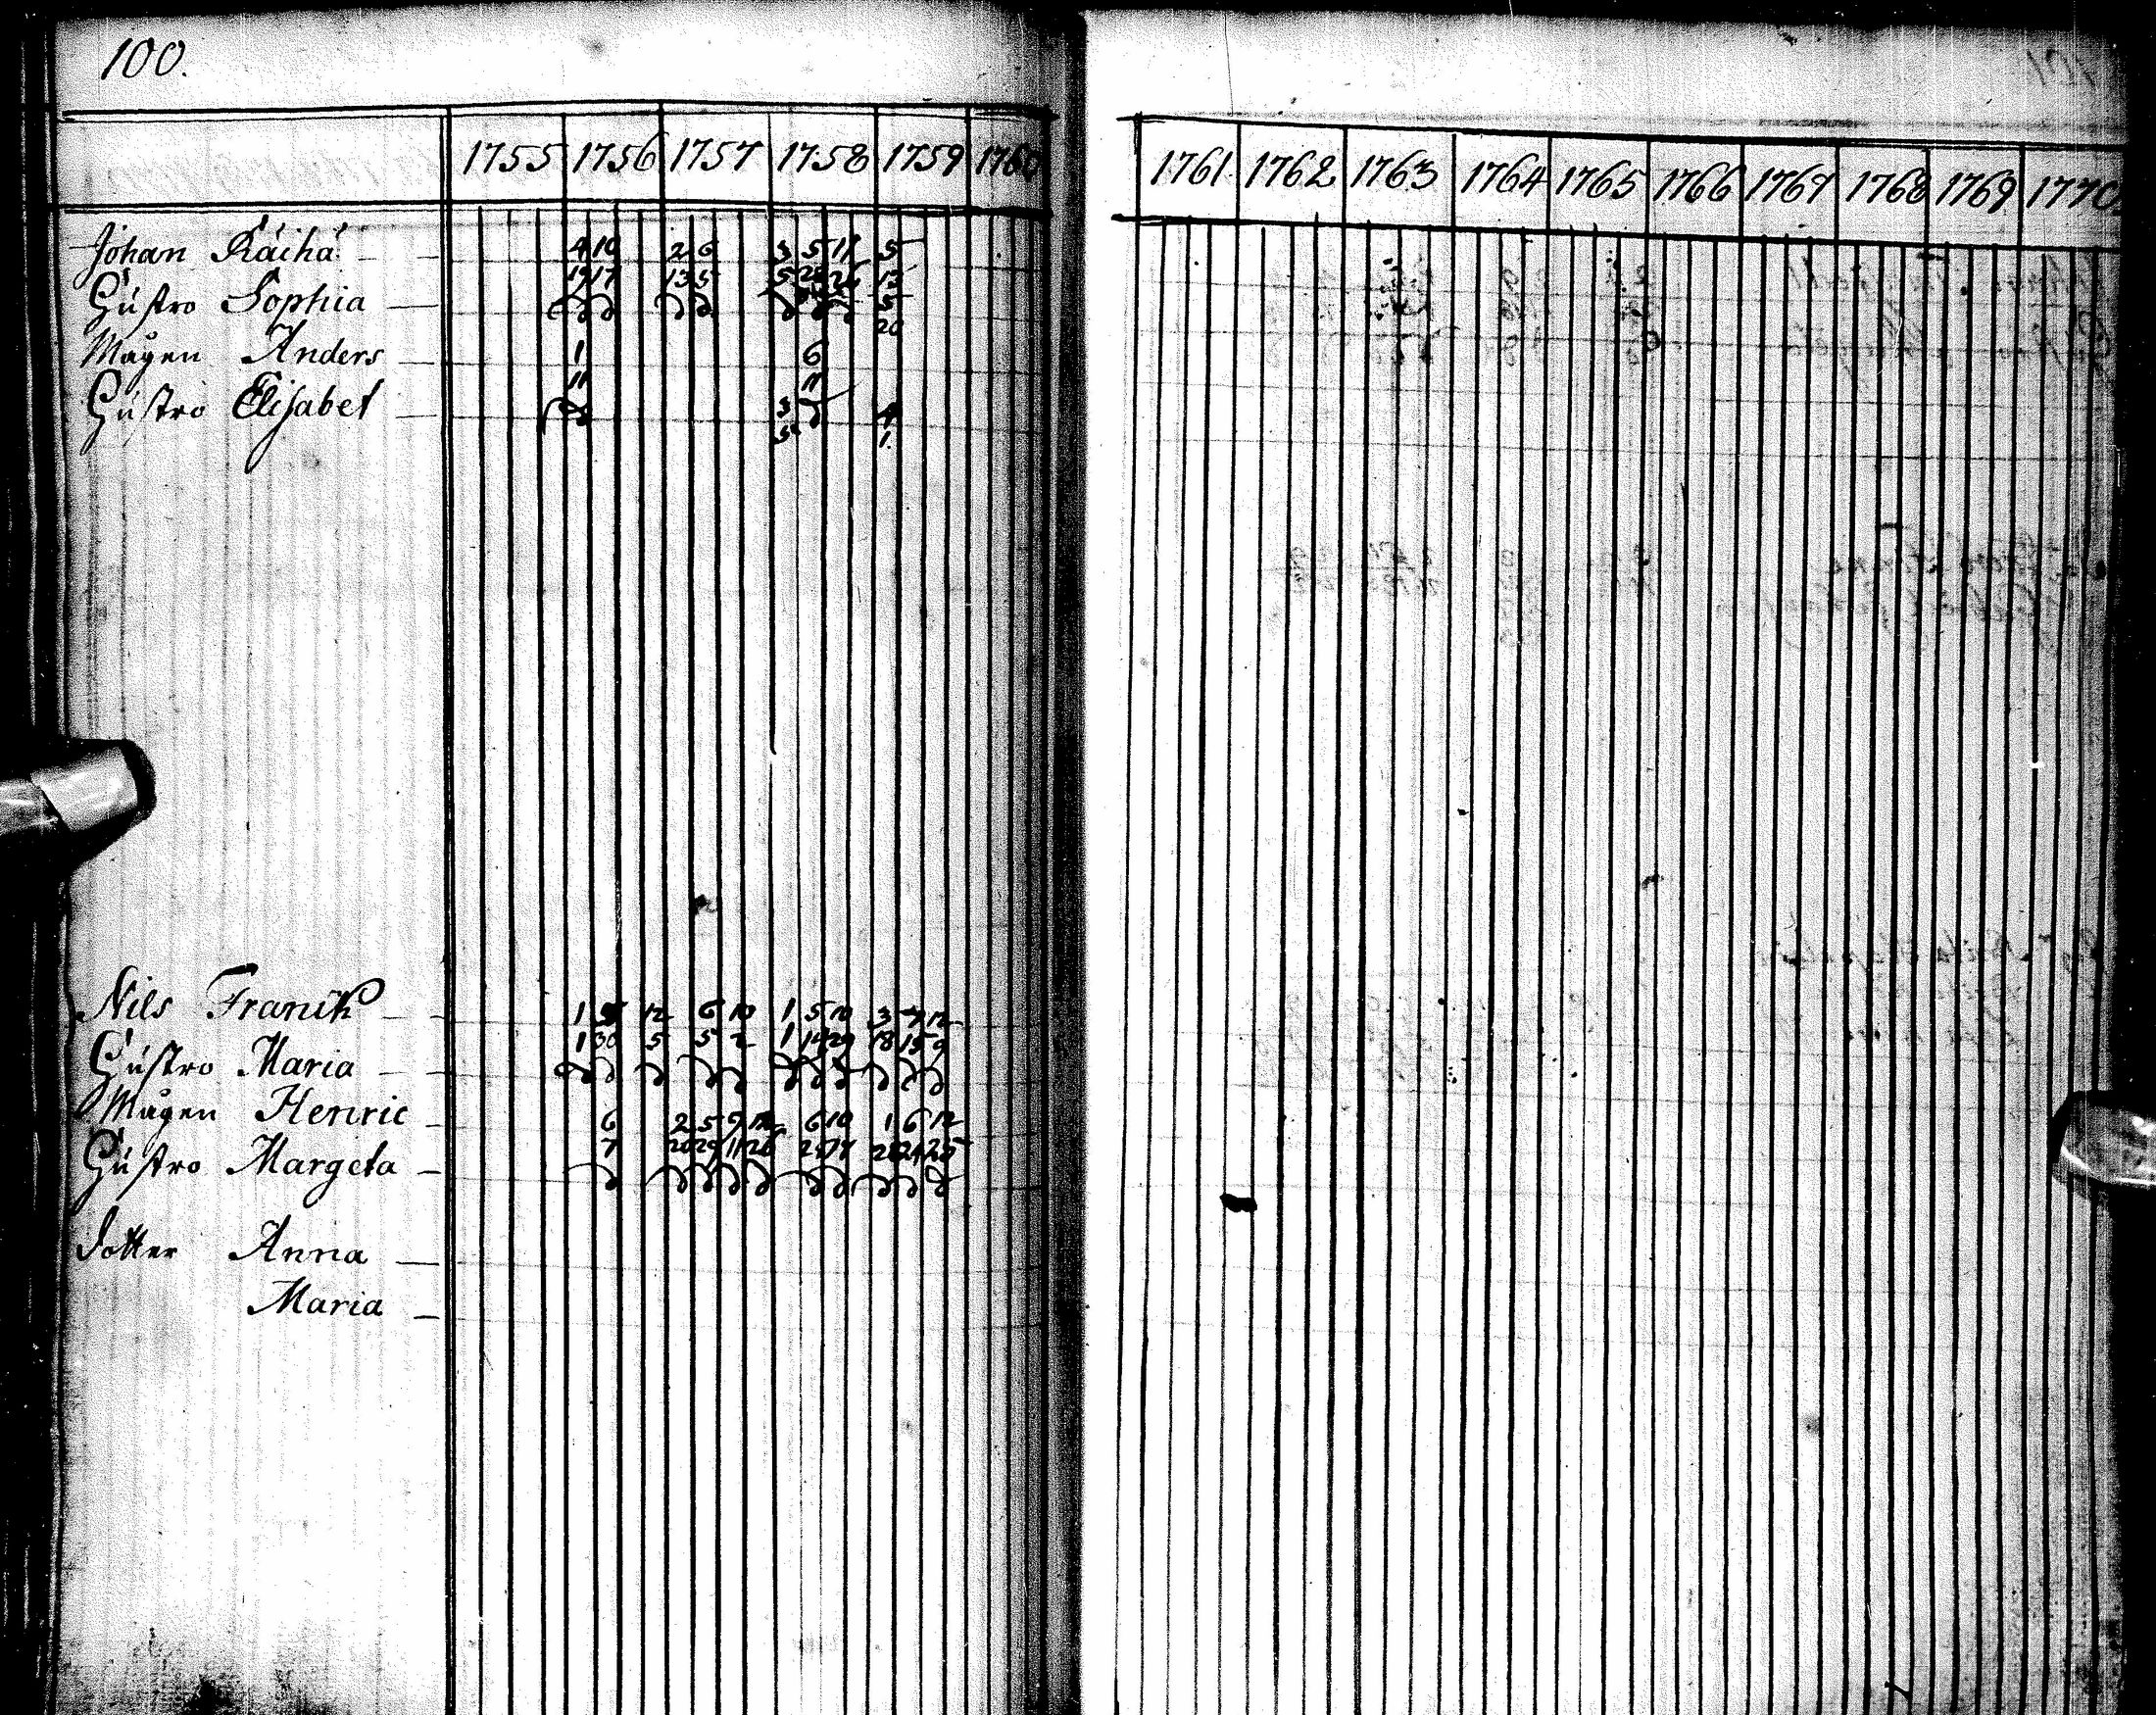 100.
1755 1756 1757 1758 1759 1760
1761 1762 1763 1764 1765 1766 1767 1768 1769 1770
Johan Räihä 4 10 2 6 3 5 11 5
19 17 13 5 5 28 26 13
Hustro Sophia 5
20
Mågen Anders 1 6
11 11
Hustro Elisabet 3 4
5 1
Nils Franck 1 12 6 10 1 5 10 3 7 12
1 30 5 5 2 1 14 29 18 15 9
Hustro Maria
Mågen Henric 6 2 5 9 12 6 10 1 6 12
7 20 29 11 26 25 17 28 24 25
Hustro Margeta
Dotter Anna
Maria